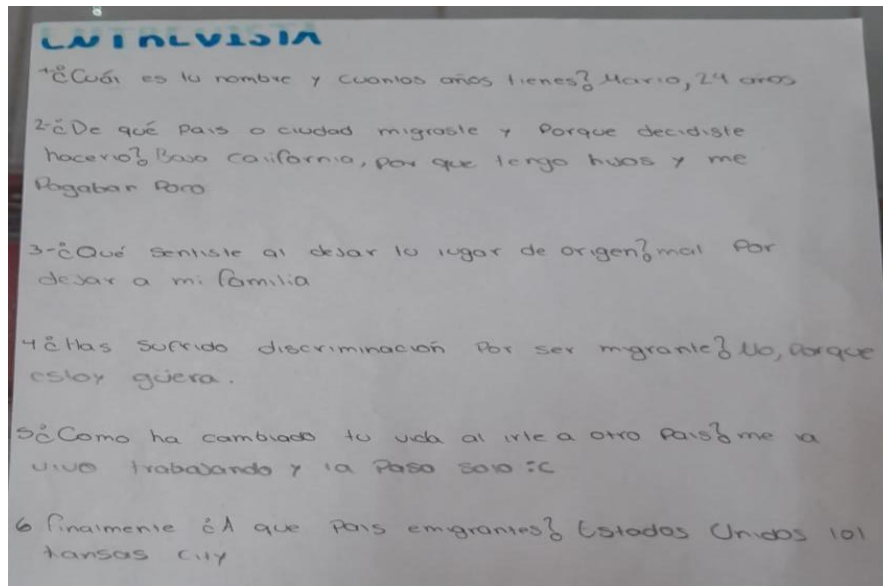 ENTREVISTA
1-¿Cuál es tu nombre y cuantos años tienes? Mario, 24 años
2-¿De qué País o ciudad migraste y Porque decidiste
hacerlo? Baja California, por que tengo hijos y me
Pagaban Poco
3-¿Qué sentiste al dejar tu lugar de origen? mal Por
dejar a mi familia
4 ¿Has sufrido discriminación Por ser migrante? No, Porque
estoy güera.
5 ¿Como ha cambiado tu vida al irte a otro País? me la
vivo trabajando y la Paso solo :C
6 finalmente ¿A que País emigrantes? Estados Unidos
kansas city